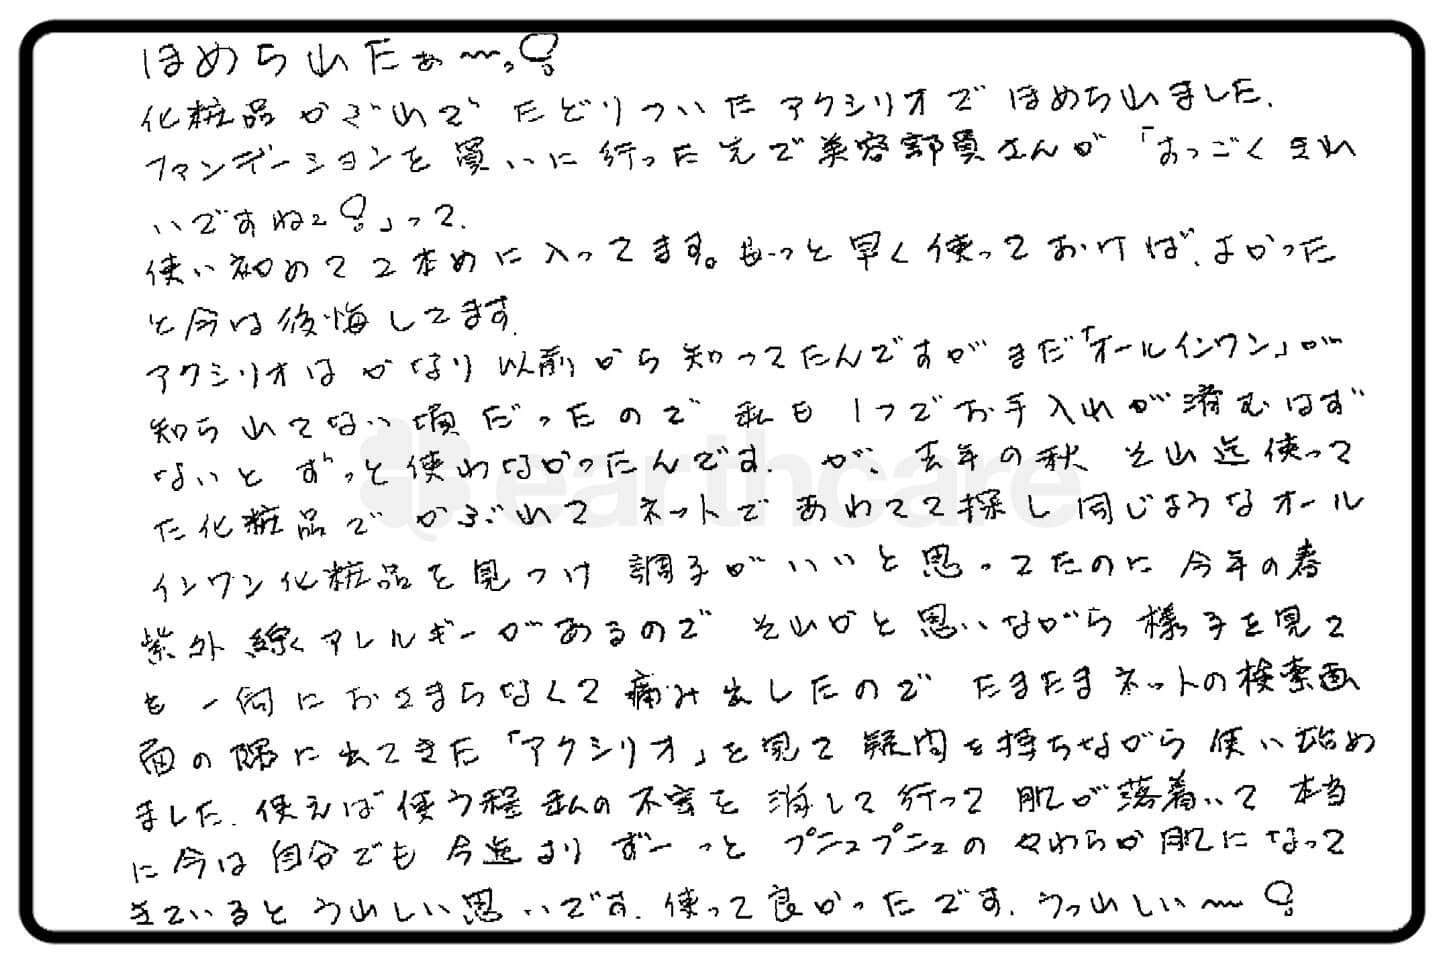 ほめられたぁ〜っ!
化粧品かぶれで たどりついた アクシリオで ほめられました.
ファンデーションを 買いに 行った 先で 美容部員さんが 「すっごく きれ
いですねェ!」って.
使い初めて 2本めに 入ってます。もっと 早く 使って おけば、よかった
と 今は 後悔 してます.
アクシリオは かなり 以前から 知ってたんですが まだ「オールインワン」が
知られてない頃だったので 私も 1つで お手入れが 済むはず
ないと ずっと使わなかったんです. が、去年の秋、それ迄使って
た化粧品で かぶれて ネットで あわてて探し 同じような オール
インワン化粧品を見つけ 調子がいいと思ってたのに 今年の春
紫外線アレルギーがあるので それかと思いながら 様子を見て
も 一向に おさまらなくて 痛み出したので たまたまネットの検索画
面の隅に出てきた「アクシリオ」を見て 疑問を持ちながら 使い始め
ました. 使えば 使う程 私の 不安を 消して行って 肌が落着いて 本当
に今は 自分でも 今迄より ずーっと プニュプニュの やわらか肌になって
きていると うれしい思いです. 使って良かったです. うっれしい〜!
earthcare